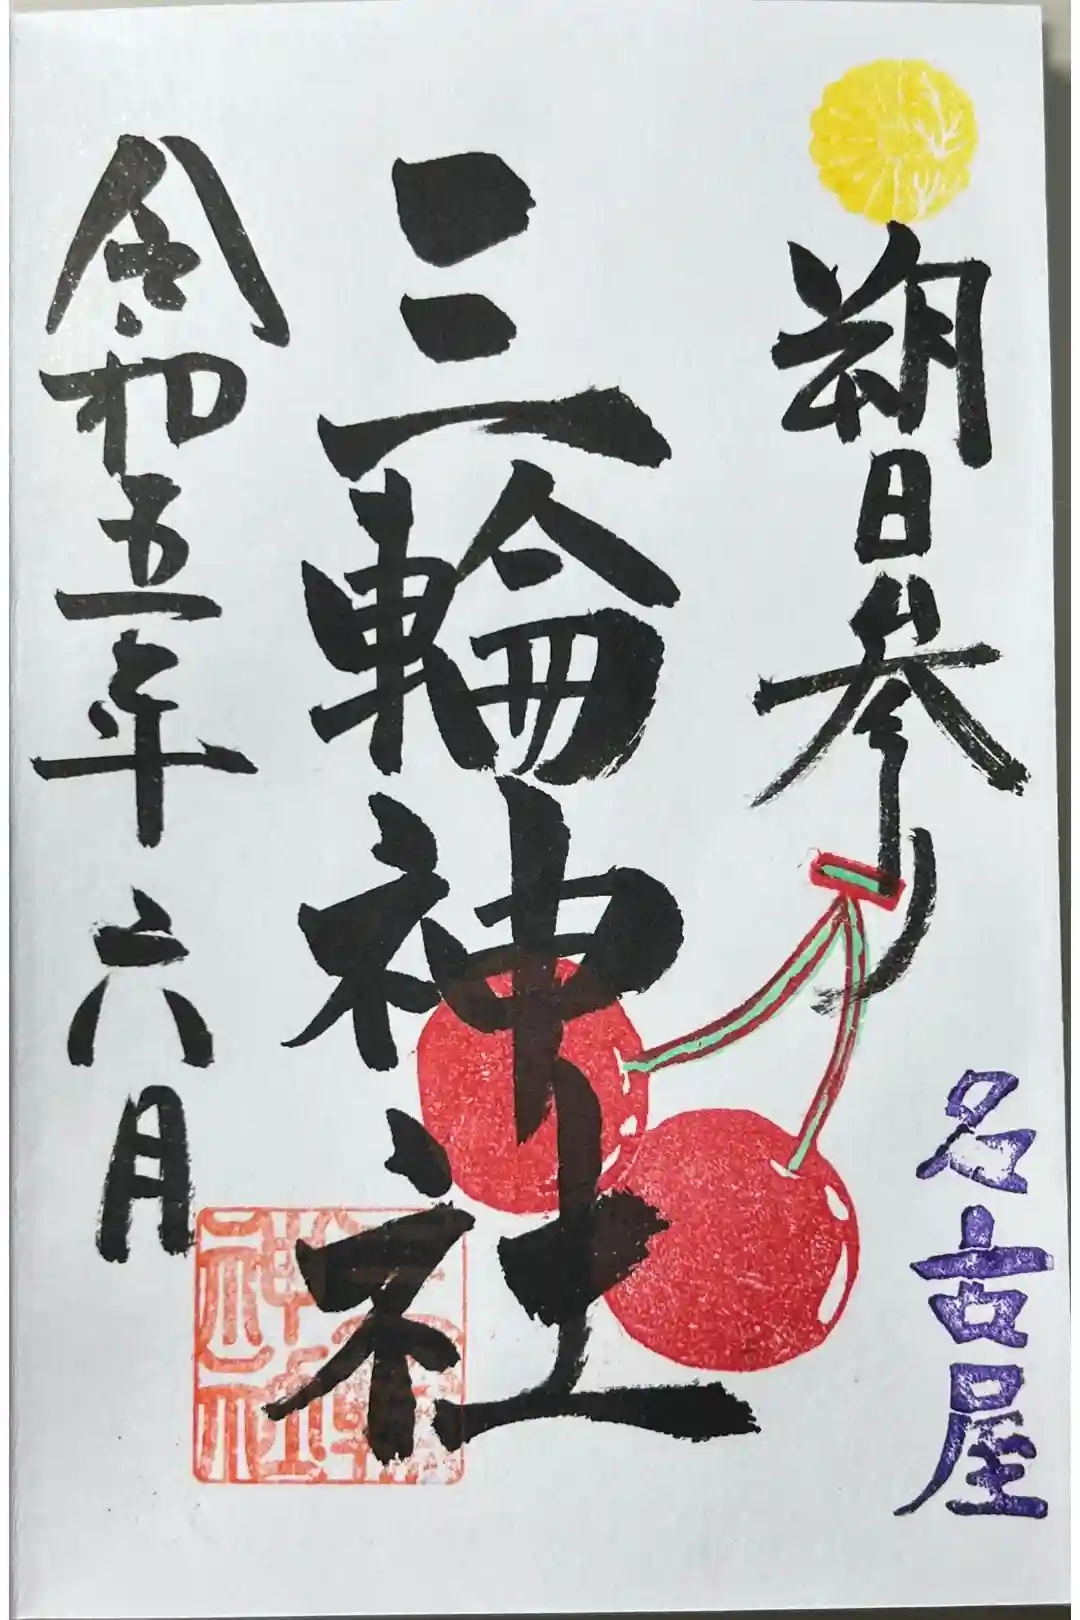 朔日参り
名古屋
三輪神社
三輪神社
令和五年六月